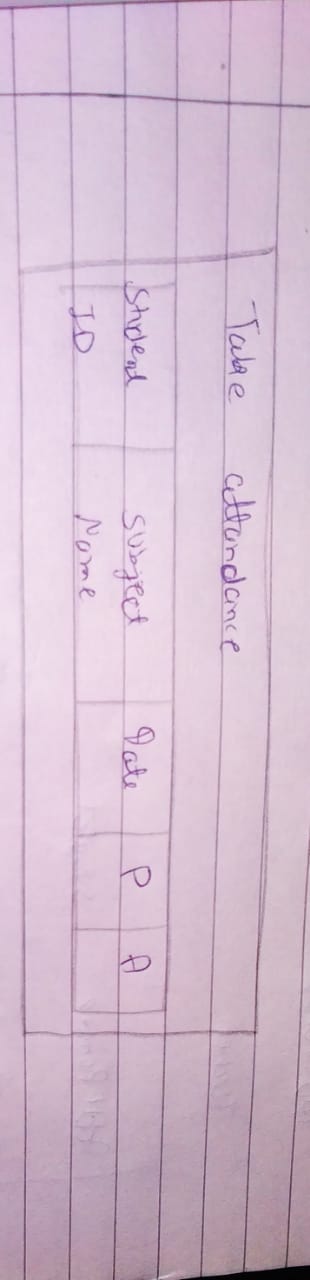 Take attandance
Student ID
Subject Name
Date
P
A